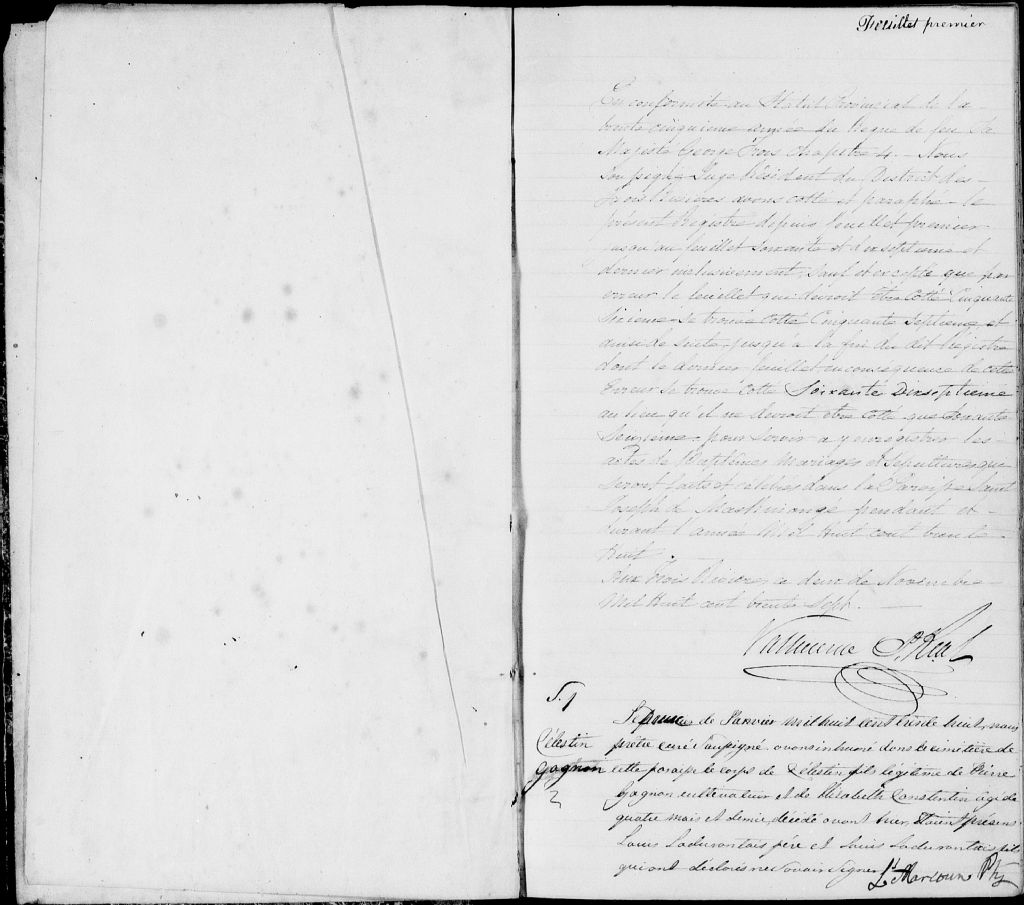 Feuillet premier
En conformité au Statut Provincial de la
trente cinquieme année du Regne de feu Sa
Majesté George Trois chapitre 4. — Nous
Soussigné Juge Résident du District des
Trois Rivieres avons cotté et paraphé le
présent Registre depuis feuillet premier
jusqu'au feuillet soixante et dixseptieme et
dernier inclusivement, sauf et excepté que par
erreur le feuillet qui devroit être cotté Cinquante
Sixieme se trouve cotté Cinquante Septieme et
ainsi de suite jusqu'a la fin du dit Régistre
dont le dernier feuillet en consequence de cette
Erreur se trouve cotté Soixante Dixseptieme
au lieu qu'il ne devroit etre cotté que Soixante
Seizieme pour servir a y enregistrer les
actes de Baptêmes Mariages et Sepultures que
seront faits et célébrés dans la Paroisse Saint
Joseph de Maskinongé pendant et
durant l'année Mil Huit cent trente
huit.
Aux Trois Rivieres, ce deux de Novembre
Mil Huit cent trente Sept. —
Vallieres de St. Real
S. 1
Célestin
Gagnon
Le premier de Janvier mil huit cent trente huit, nous
prêtre curé soussigné avons inhumé dans le cimetière de
cette paroisse le corps de Célestin fils légitime de Pierre
Gagnon cultivateur et de Elizabeth Constantin agé de
quatre mois et demie, décédé avant hier, Etaient présens
Louis Ladurantais père et Louis Ladurantais fils
qui ont déclaré ne savoir signer.
L. Marcoux Ptre